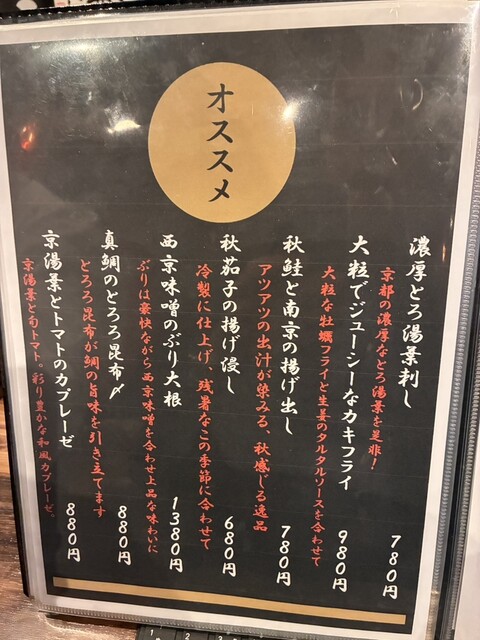 オススメ
濃厚とろ湯葉刺し
京都の濃厚なとろ湯葉を是非！
780円
大粒でジューシーなカキフライ
大粒な牡蠣フライと生姜のタルタルソースを合わせて
980円
秋鮭と南京の揚げ出し
アツアツの出汁が染みる、秋感じる逸品
780円
秋茄子の揚げ浸し
冷製に仕上げ、残暑なこの季節に合わせて
680円
西京味噌のぶり大根
ぶりは豪快ながら西京味噌を合わせ上品な味わいに
1380円
真鯛のとろろ昆布〆
とろろ昆布が鯛の旨味を引き立てます
880円
京湯葉とトマトのカプレーゼ
京湯葉と旬トマト。彩り豊かな和風カプレーゼ。
880円